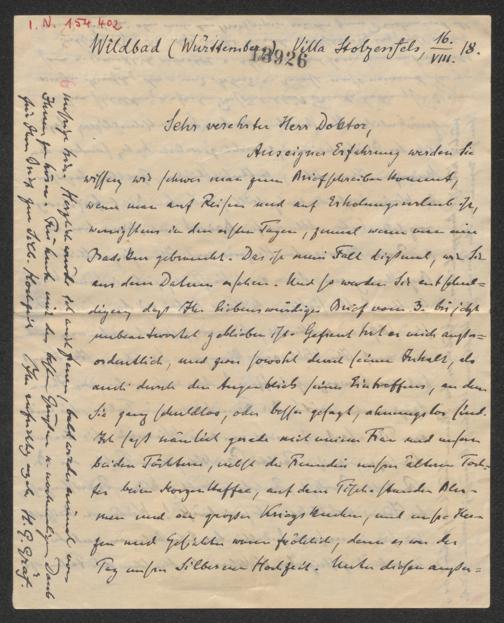 I. N. 154.402
13926
Wildbad (Württemberg) Villa Stolzenfels, 16./VIII. 18.
Sehr verehrter Herr Doktor,
Aus eigner Erfahrung werden Sie
wissen wie schwer man zum Briefschreiben kommt,
wenn man auf Reisen und auf Erholungsurlaub ist,
wenigstens in den ersten Tagen, zumal wenn man eine
Badekur gebraucht. Das ist mein Fall diesmal, wie Sie
aus dem Datum ersehen. Und so werden Sie entschul-
digen daß Ihr liebenswürdiger Brief vom 3. bis jetzt
unbeantwortet geblieben ist. Gefreut hat er mich außer-
ordentlich, und zwar sowohl durch seinen Inhalt, als
auch durch den Augenblick seines Eintreffens, an dem
Sie ganz schuldlos, oder besser gesagt, ahnungslos sind.
Ich saß nämlich gerade mit meiner Frau und unsern
beiden Töchtern, nebst der Freundin unsrer älteren Toch-
ter beim Morgenkaffee, auf dem Tisch standen Blu-
men und ein großer Kriegskuchen, und unsre Her-
zen und Gesichter waren fröhlich; denn es war der
Tag unsrer Silbernen Hochzeit. Unter diesen außer-
Herzlich würde ich mich freuen, bald wieder einmal von
Ihnen zu hören. Mit den besten Grüßen u. nochmaligem Dank
für Ihren Brief zur Silb. Hochzeit Ihr aufrichtig ergeb. H. G. Gräf.